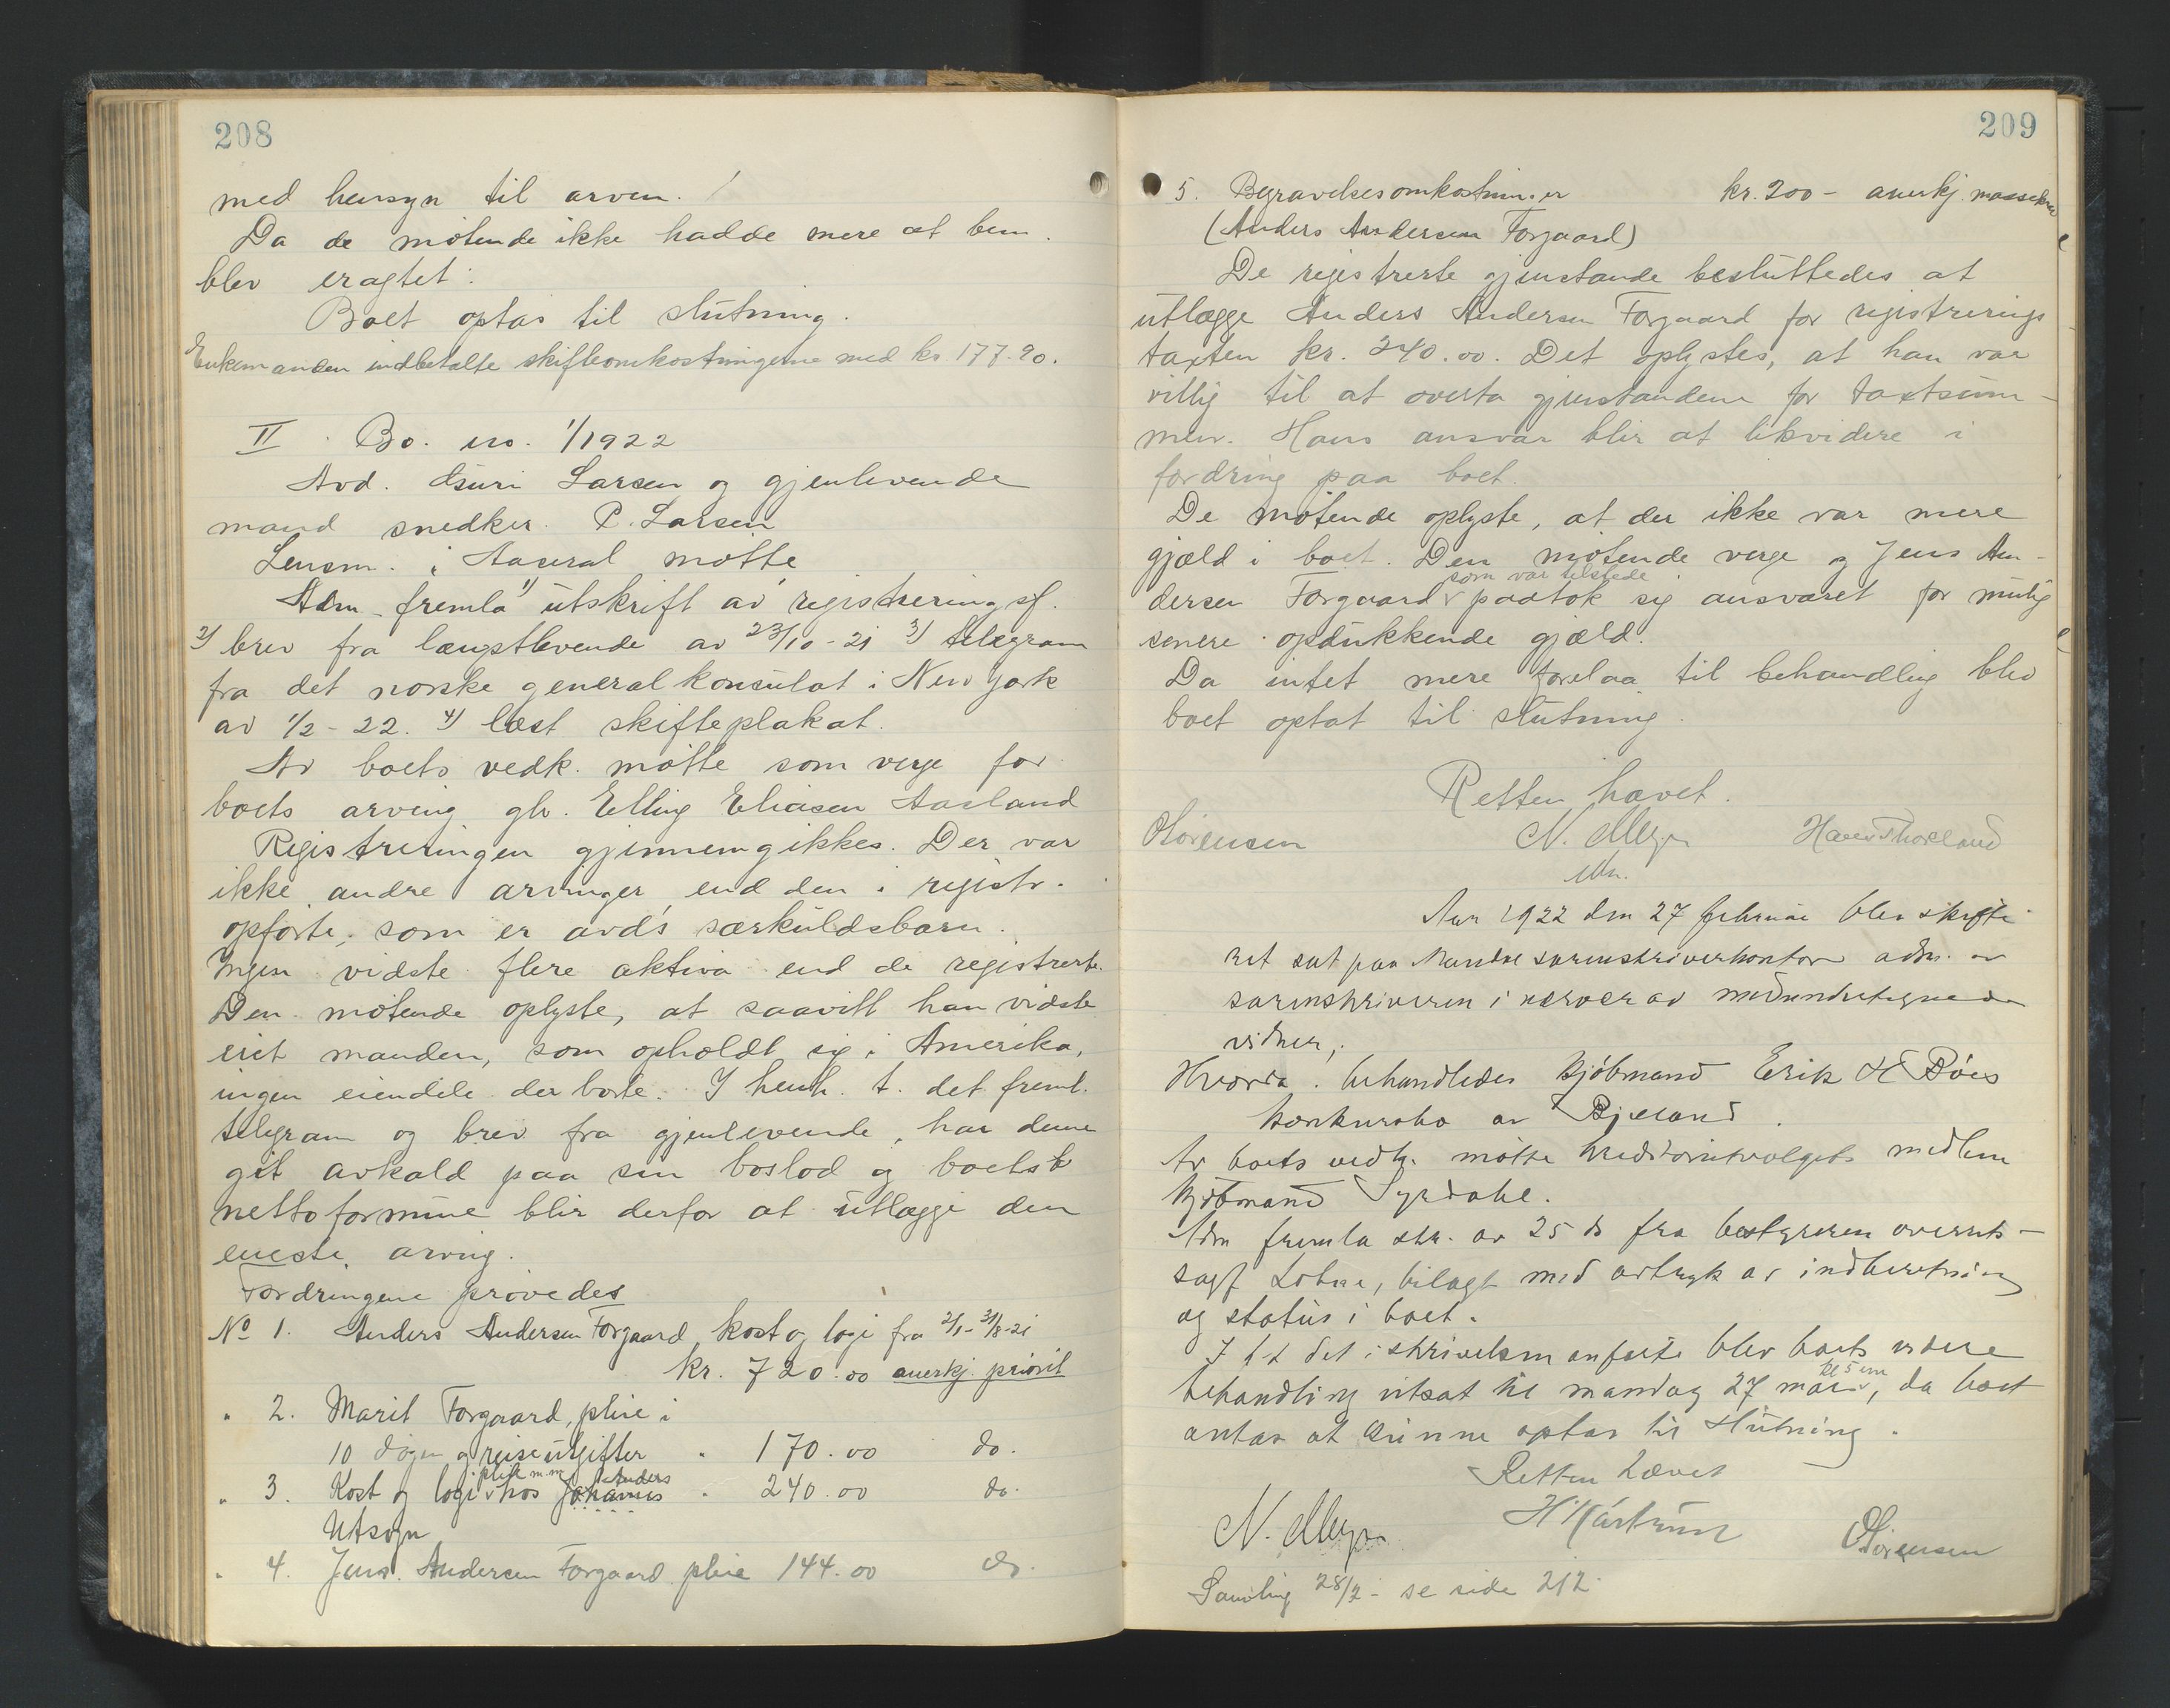 208
med hensyn til arven.
Da de møtende ikke hadde mere at bem.
blev eragtet:
Boet optas til slutning.
Enkemanden indbetalte skifteomkostningerne med kr. 177.90.
II. Bo. no. 1/1922
Avd. Guri Larsen og gjenlevende
mand snedker P. Larsen
Lensm. i Aaseral møtte
Adm. fremla 1) utskrift av registreringsf.
2) brev fra længstlevende av 23/10-21 3) telegram
fra det norske generalkonsulat i New York
av 1/2-22. 4) læst skifteplakat.
Av boets vedk. møtte som verge for
boets arving gb. Elling Eliasen Aasland
Registreringen gjennemgikkes. Der var
ikke andre arvinger end den i registr.
opførte, som er avd's særkuldsbarn.
Ingen vidste flere aktiva end de registrerte.
Den møtende oplyste, at saavitt han vidste
eiet manden, som opholdt sig i Amerika,
ingen eiendele der borte. I henh. t. det freml.
telegram og brev fra gjenlevende, har denne
git avkald paa sin boslod og boets
nettoformue blir derfor at utlægge den
eneste arving.
Fordringene prøvedes
No 1. Anders Andersen Forgaard kost og logi fra 2/1-31/8-21
kr. 720.00 anerkj. priorit
" 2. Marit Forgaard, pleie i
10 døgn og reiseutgifter " 170.00 do.
pleie m.m. Anders
" 3. Kost og logi v hos Johannes " 240.00 do.
Utsogn
" 4. Jens Andersen Forgaard pleie 144.00 do.
209
5. Begravelsesomkostninger kr. 200- anerkj. massekrav
(Anders Andersen Forgaard)
De registrerte gjenstande besluttedes at
utlægge Anders Andersen Forgaard for registrerings
taxten kr. 240.00. Det oplystes, at han var
villig til at overta gjenstandene for taxtsum-
men. Hans ansvar blir at likvidere i
fordring paa boet.
De møtende oplyste, at der ikke var mere
gjæld i boet. Den møtende verge og Jens An-
som var tilstede
dersen Forgaard v paatok sig ansvaret for mulig
senere opdukkende gjæld.
Da intet mere forelaa til behandling blev
boet optat til slutning.
Retten hævet.
Sørensen N. Meyer Hans Thorsland
Aar 1922 den 27 februar blev skifte
ret sat paa Mandal sorenskriverkontor adm. av
sorenskriveren i nærvær av medundertegnede
vidner,
Hvorda behandledes kjøbmand Erik H Bøes
konkursbo av Bjelland.
Av boets vedk. møtte kreditorutvalgets medlem
kjøbmand Syrdahl.
Adm fremla skr. av 25 ds fra bestyreren overrets-
sagf. Lohne, bilagt med avtryk av indberetning
og status i boet.
I h t det i skrivelsen anførte blev boets videre
kl 5 em
behandling utsat til mandag 27 mars v, da boet
antas at kunne optas til slutning.
Retten hævet
N. Meyer Sørensen
Samling 28/2 - se side 212